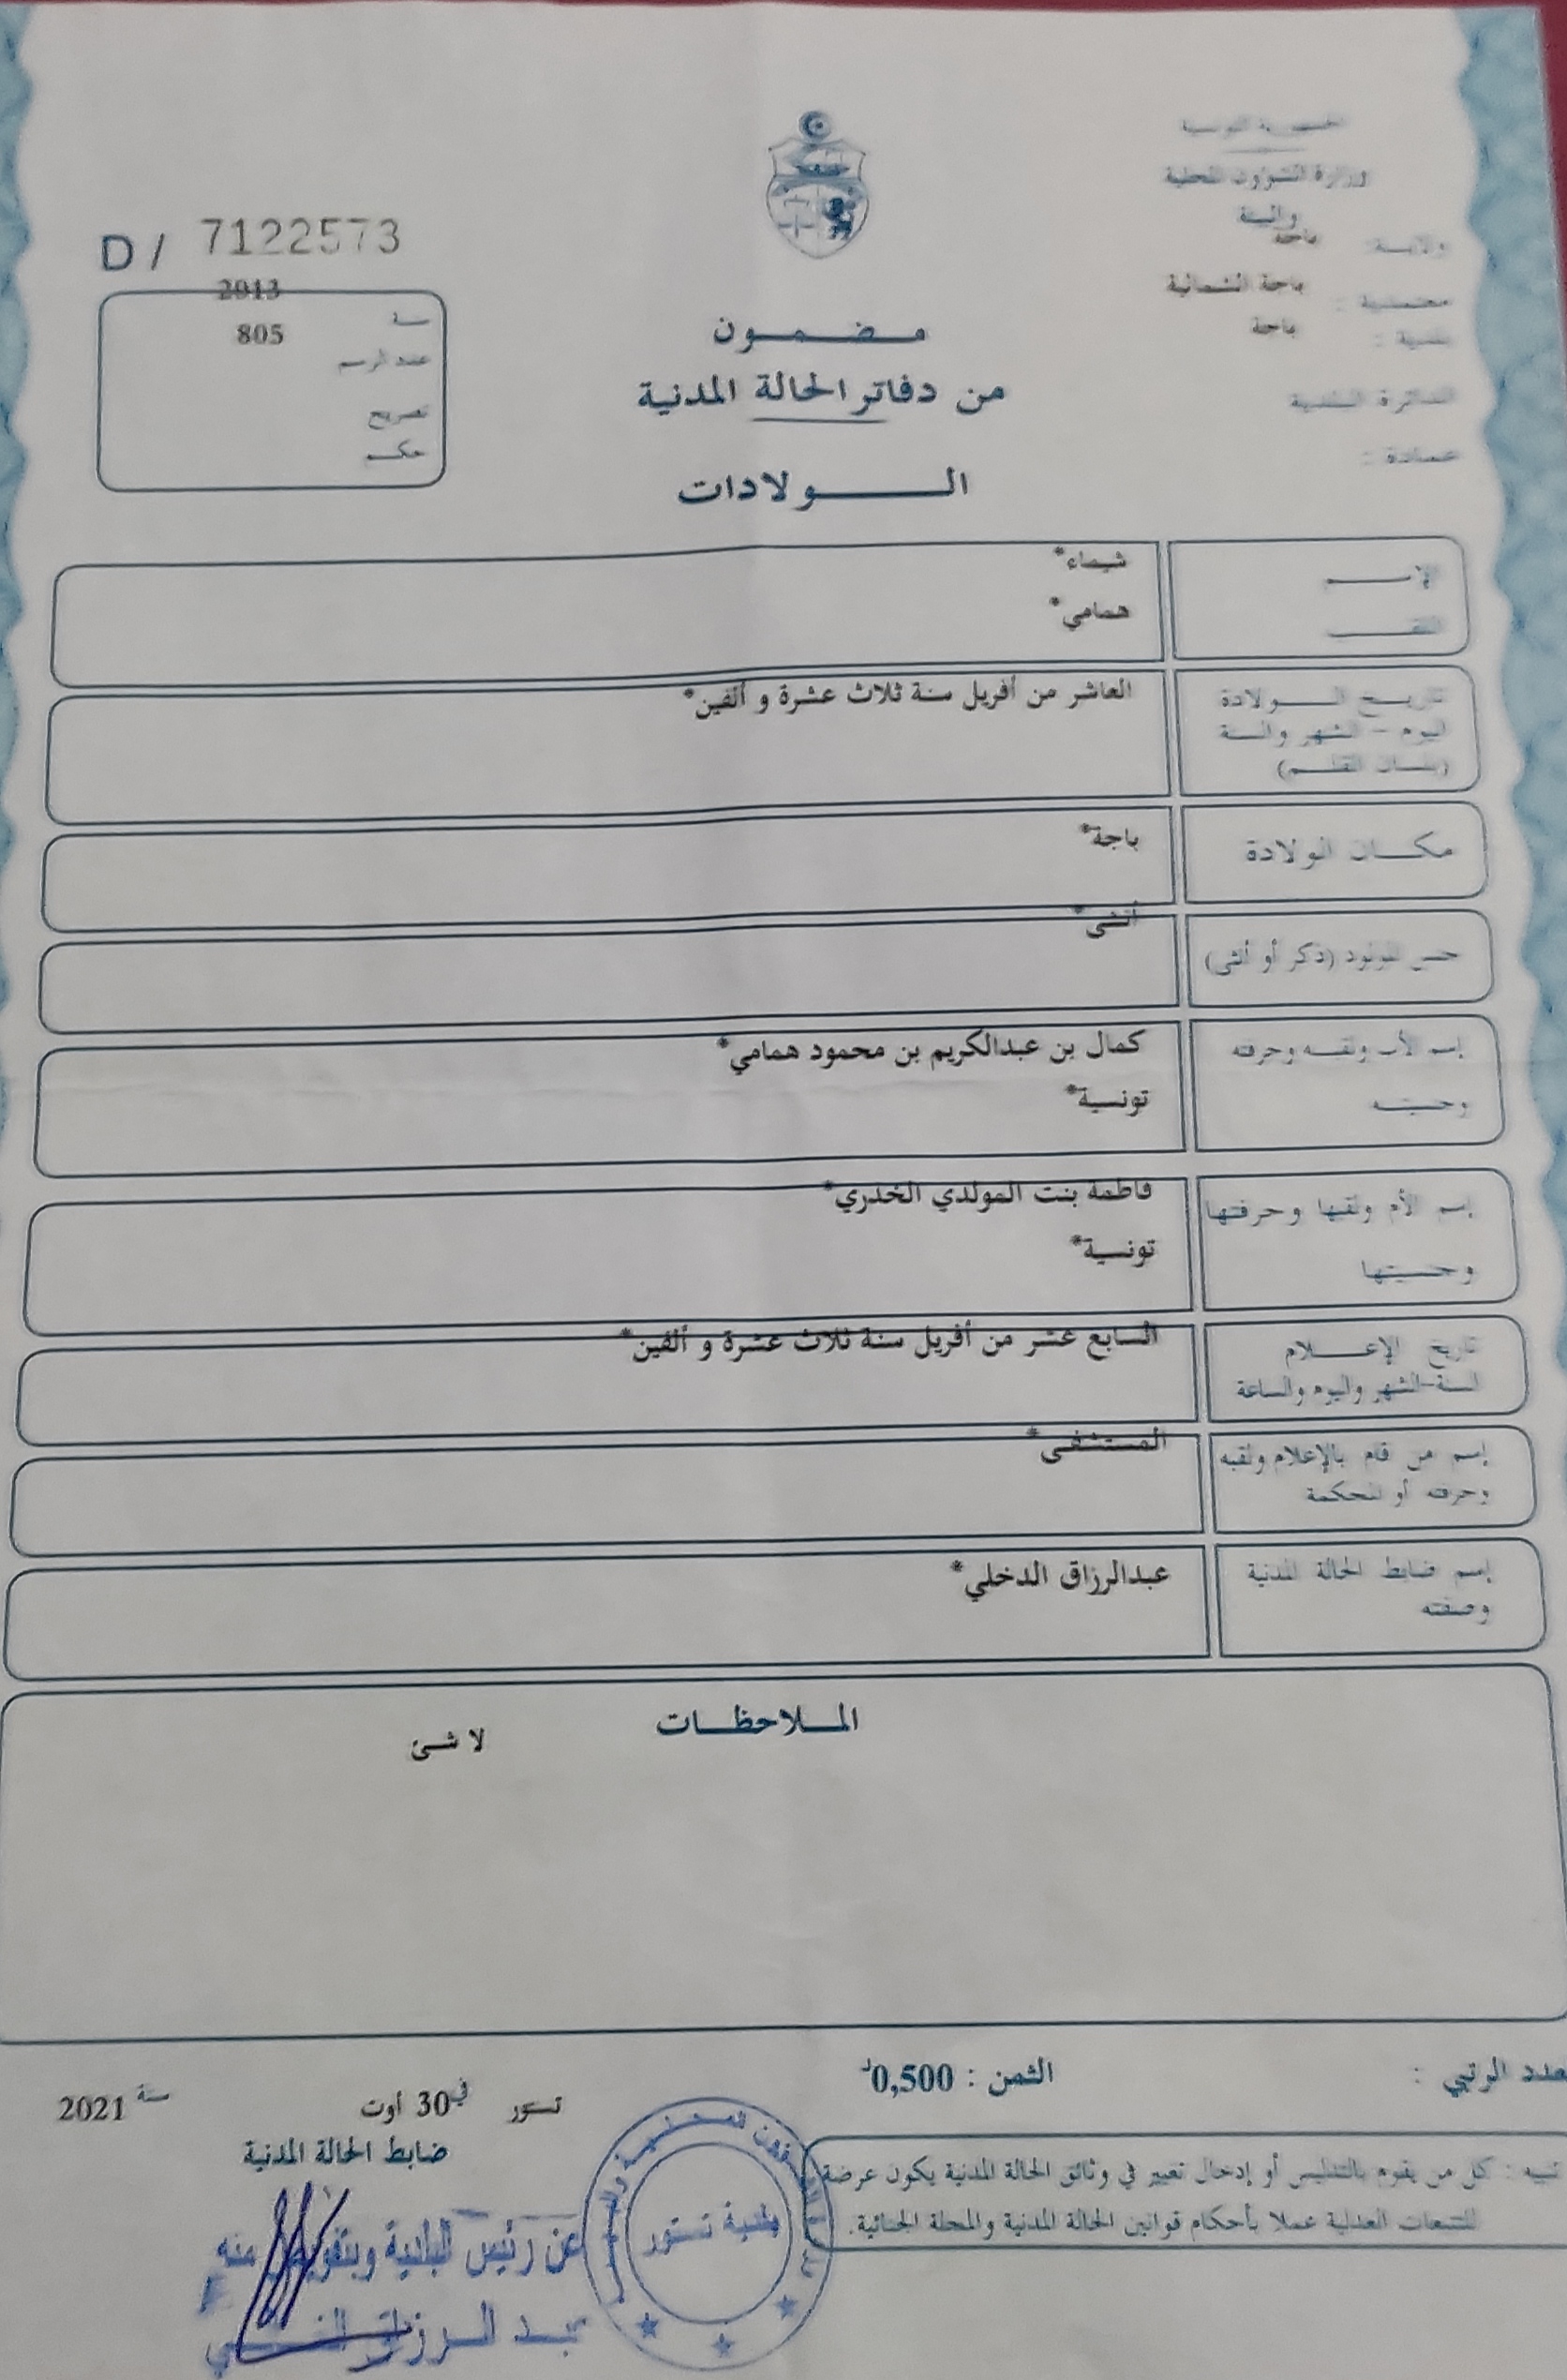 الجمهورية التونسية
وزارة الشؤون المحلية
والبيئة
ولاية: باجة
معتمدية : باجة الشمالية
بلدية : باجة
الدائرة البلدية
عمادة :
D / 7122573
سنة 2013
عدد الرسم 805
تصريح
حكم
مضمون
من دفاتر الحالة المدنية
الولادات
الإسم شيماء*
اللقب همامي*
تاريخ الولادة العاشر من أفريل سنة ثلاث عشرة و ألفين*
اليوم - الشهر والسنة
(بلسان القلم)
مكان الولادة باجة*
جنس المولود (ذكر أو أنثى) أنثى*
إسم الأب ولقبه وحرفته كمال بن عبدالكريم بن محمود همامي*
وجنسيته تونسية*
إسم الأم ولقبها وحرفتها فاطمة بنت المولدي الخدري*
وجنسيتها تونسية*
تاريخ الإعلام السابع عشر من أفريل سنة ثلاث عشرة و ألفين*
السنة-الشهر واليوم والساعة
إسم من قام بالإعلام ولقبه المستشفى*
وحرفته أو المحكمة
إسم ضابط الحالة المدنية عبدالرزاق الدخلي*
وصفته
الملاحظات
لا شئ
عدد الرتبي :
الثمن : 0,500د
تستور في 30 أوت سنة 2021
ضابط الحالة المدنية
تنبيه : كل من يقوم بالتدليس أو إدخال تغيير في وثائق الحالة المدنية يكون عرضة
للتتبعات العدلية عملا بأحكام قوانين الحالة المدنية والمجلة الجنائية.
بلدية تستور
عن رئيس البلدية وبتفويض منه